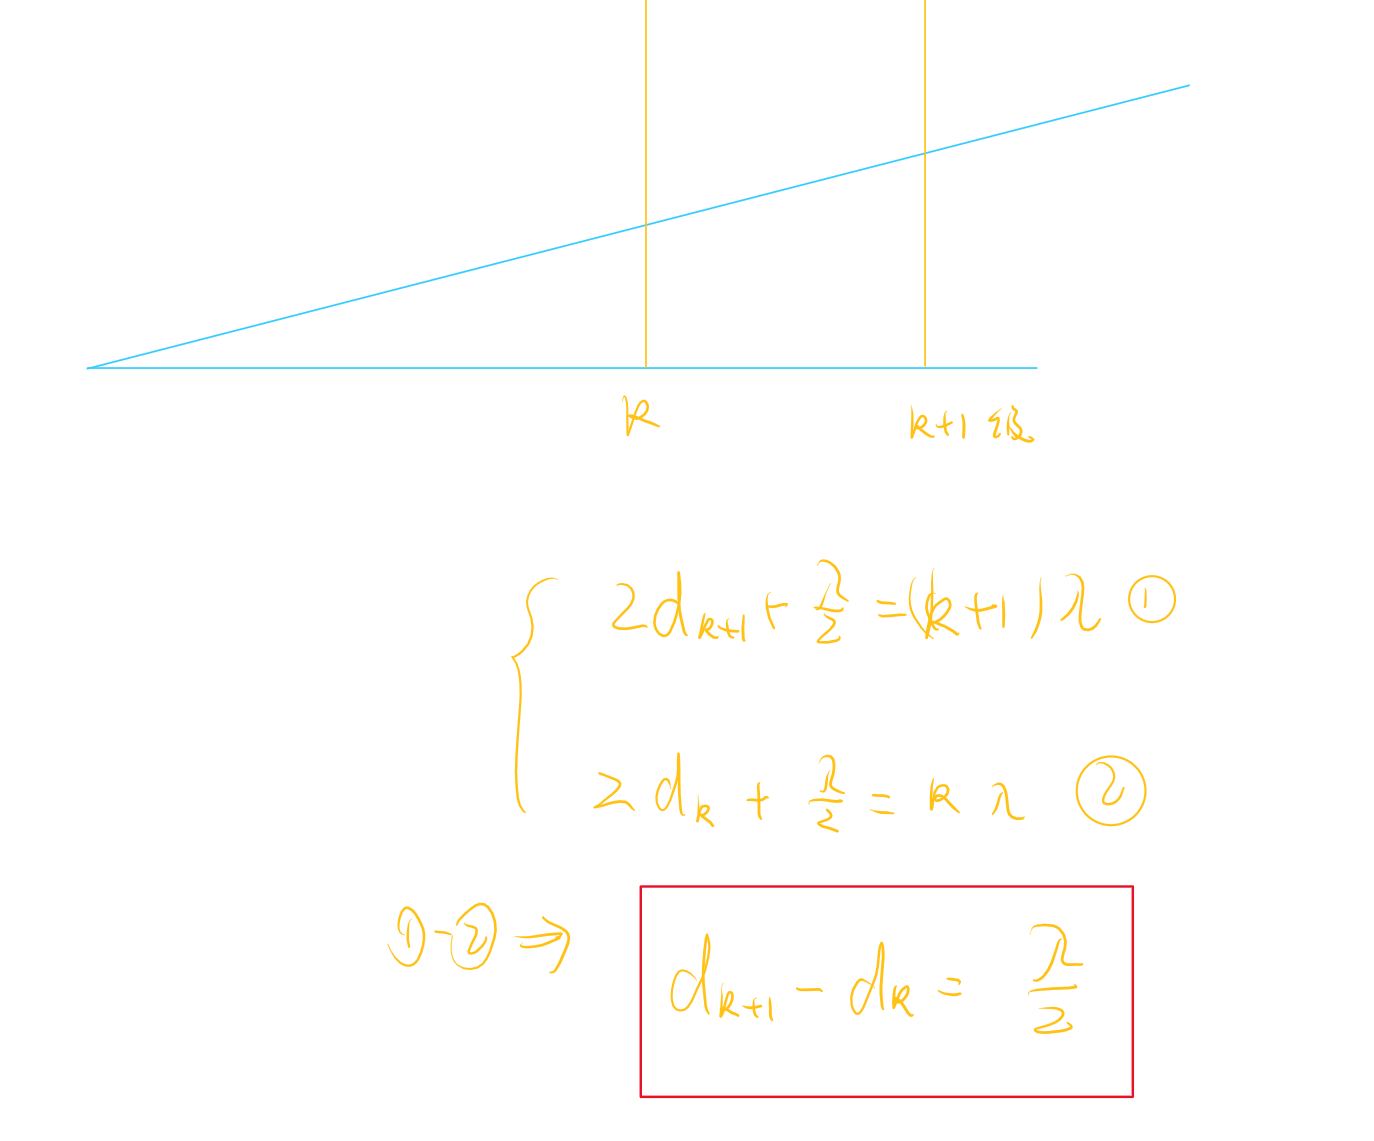 k k+1 级
2d_{k+1} + λ/2 = (k+1)λ ①
2d_k + λ/2 = kλ ②
①-② ⇒ d_{k+1} - d_k = λ/2